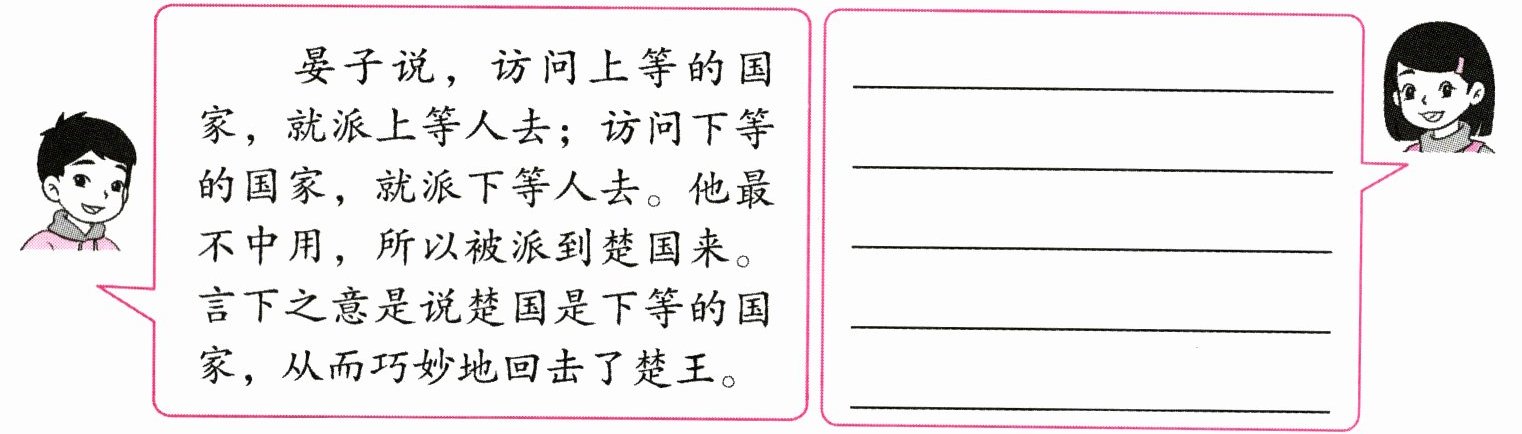 晏子说，访问上等的国
家，就派上等人去；访问下等
的国家，就派下等人去。他最
不中用，所以被派到楚国来。
言下之意是说楚国是下等的国
家，从而巧妙地回击了楚王。